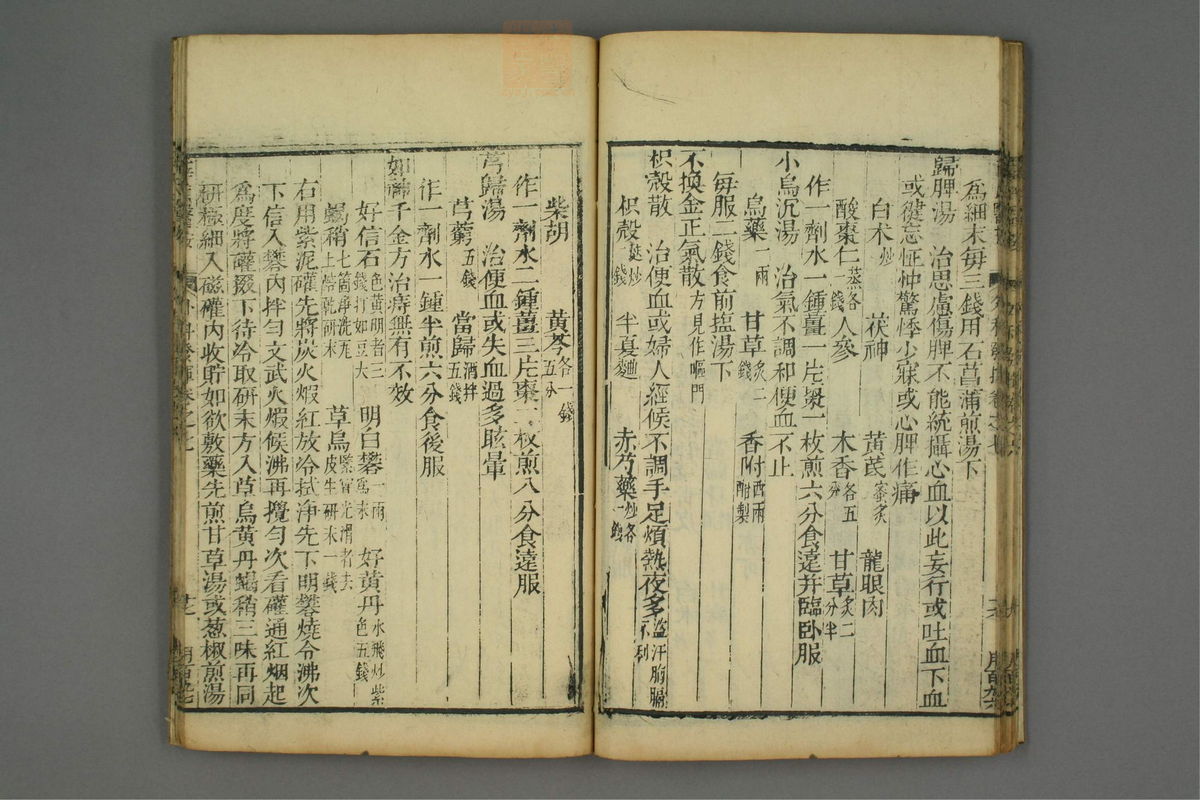 為細末每三錢用石菖蒲煎湯下
歸脾湯　治思慮傷脾不能統攝心血以此妄行或吐血下血
或健忘怔忡驚悸少寐或心脾作痛
白朮炒　茯神　黃芪蜜炙　龍眼肉
酸棗仁蒸各一錢　人參　木香各五分　甘草炙二分半
作一劑水一鍾薑一片棗一枚煎六分食遠并臨臥服
小烏沉湯　治氣不調和便血不止
烏藥一兩　甘草炙二錢　香附四兩醋製
每服二錢食前塩湯下
不換金正氣散方見作嘔門
枳殼散　治便血或婦人經候不調手足煩熱夜多盜汗胸膈不利
枳殼麩炒錢　半夏麯　赤芍藥炒各一錢
柴胡　黃芩各一錢五分
作一劑水二鍾薑三片棗二枚煎八分食遠服
芎歸湯　治便血或失血過多眩暈
芎藭五錢　當歸酒拌五錢
作一劑水一鍾半煎六分食後服
如神千金方治痔無有不效
好信石色黃明者三錢打如豆大　明白礬一兩為末　好黃丹水飛炒紫色五錢
蝎稍七箇淨洗瓦上焙乾研末　草烏緊實光滑者去皮生研末一錢
右用紫泥礶先將炭火煆紅放冷拭淨先下明礬燒令沸次
下信入礬內拌勻文武火煆候沸再攪勻次看礶通紅烟起
為度將礶掇下待冷取研末方入草烏黃丹蝎稍三味再同
研極細入磁礶內收貯如欲敷藥先煎甘草湯或葱椒煎湯